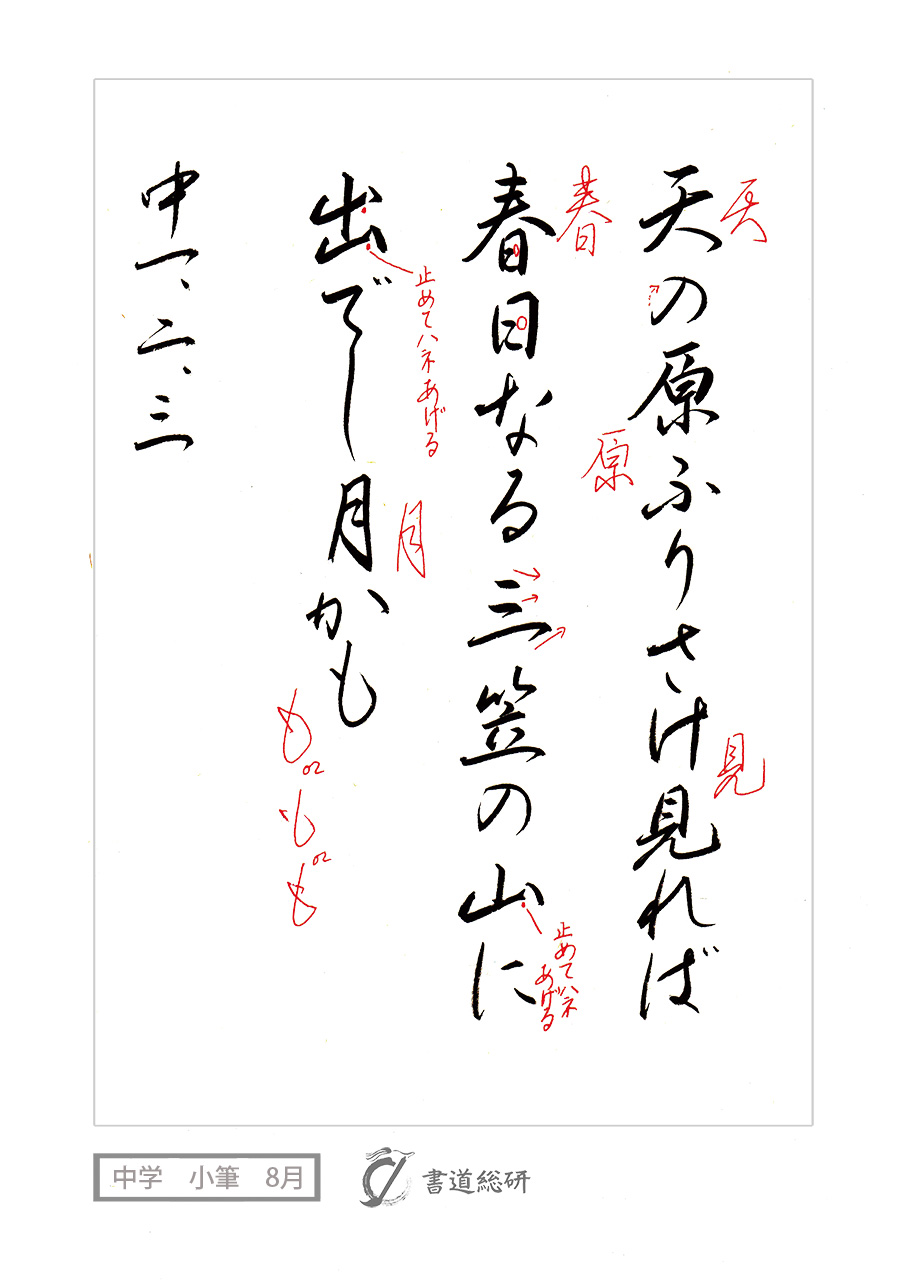 天の原ふりさけ見れば
天
原
見
春日なる三笠の山に
春
止めてハネ
あげる
出でし月かも
止めてハネあげる
月
も
or
も
or
も
中一、二、三
中学 小筆 8月
書道総研